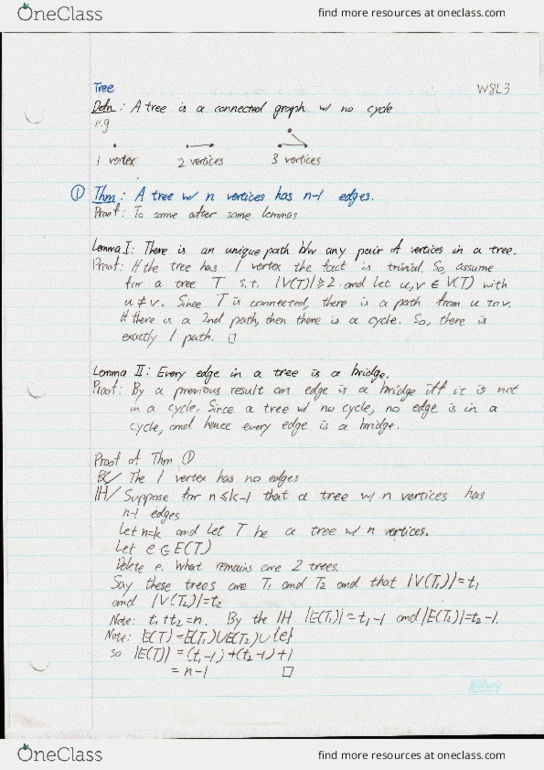 OneClass
find more resources at oneclass.com
Tree
W8L3
Defn: A tree is a connected graph w/ no cycle
e.g
1 vertex 2 vertices 3 vertices
① Thm: A tree w/ n vertices has n-1 edges.
Proof: To come after some lemmas
Lemma I: There is an unique path b/w any pair of vertices in a tree.
Proof: If the tree has 1 vertex the fact is trivial. So, assume
for a tree T s.t. |V(T)|≥2 and let u,v ∈ V(T) with
u≠v. Since T is connected, there is a path from u to v.
If there is a 2nd path, then there is a cycle. So, there is
exactly 1 path. □
Lemma II: Every edge in a tree is a bridge.
Proof: By a previous result an edge is a bridge iff it is not
in a cycle. Since a tree w/ no cycle, no edge is in a
cycle, and hence every edge is a bridge.
Proof of Thm ①
BC/ The 1 vertex has no edges
IH/ Suppose for n≤k-1 that a tree w/ n vertices has
n-1 edges
Let n=k and let T be a tree w/ n vertices.
Let e∈E(T)
Delete e. What remains are 2 trees.
Say these trees are T₁ and T₂ and that |V(T₁)|=t₁
and |V(T₂)|=t₂
Note: t₁+t₂=n. By the IH |E(T₁)|=t₁-1 and |E(T₂)|=t₂-1.
Note: E(T)=E(T₁)∪E(T₂)∪{e}
so |E(T)| = (t₁-1)+(t₂-1)+1
= n-1 □
OneClass
find more resources at oneclass.com